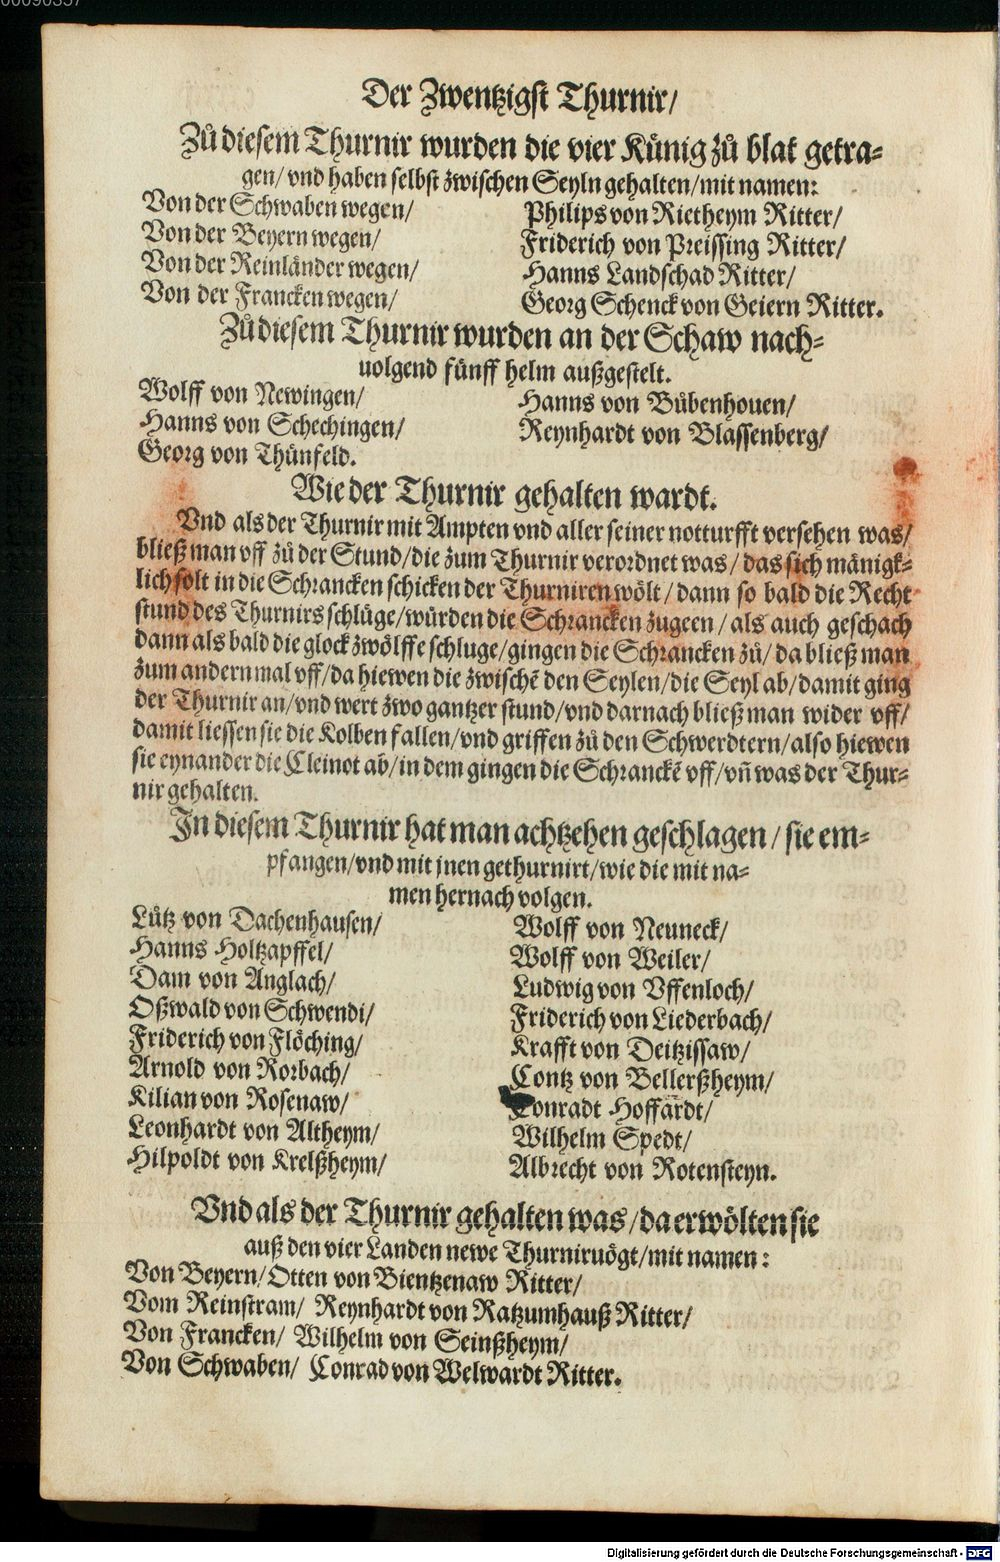 00090357
Der Zwentzigst Thurnir/
Zů diesem Thurnir wurden die vier Künig zů blat getra-
gen/ vnd haben selbst zwischen Seyln gehalten/ mit namen:
Von der Schwaben wegen/ Philips von Rietheym Ritter/
Von der Beyern wegen/ Friderich von Preissing Ritter/
Von der Reinländer wegen/ Hanns Landschad Ritter/
Von der Francken wegen/ Georg Schenck von Geiern Ritter.
Zů diesem Thurnir wurden an der Schaw nach-
uolgend fünff helm außgestelt.
Wolff von Newingen/ Hanns von Bůbenhouen/
Hanns von Schechingen/ Reynhardt von Blassenberg/
Georg von Thünfeld.
Wie der Thurnir gehalten wardt.
Vnd als der Thurnir mit Ampten vnd aller seiner notturfft versehen was/
bließ man vff zů der Stund/ die zum Thurnir verordnet was/ das sich mänigk-
lich solt in die Schrancken schicken der Thurniren wölt/ dann so bald die Recht
stund des Thurnirs schlüge/ würden die Schrancken zugeen/ als auch geschach
dann als bald die glock zwölffe schluge/ gingen die Schrancken zů/ da bließ man
zum andern mal vff/ da hiewen die zwischẽ den Seylen/ die Seyl ab/ damit ging
der Thurnir an/ vnd wert zwo gantzer stund/ vnd darnach bließ man wider vff/
damit liessen sie die Kolben fallen/ vnd griffen zů den Schwerdtern/ also hiewen
sie eynander die Cleinot ab/ in dem gingen die Schranckẽ vff/ vñ was der Thur-
nir gehalten.
In diesem Thurnir hat man achtzehen geschlagen/ sie em-
pfangen/ vnd mit jnen gethurnirt/ wie die mit na-
men hernach volgen.
Lütz von Dachenhausen/ Wolff von Neuneck/
Hanns Holtzapffel/ Wolff von Weiler/
Dam von Anglach/ Ludwig von Vffenloch/
Oßwald von Schwendi/ Friderich von Liederbach/
Friderich von Flöching/ Krafft von Deitzissaw/
Arnold von Rorbach/ Contz von Bellerßheym/
Kilian von Rosenaw/ Conradt Hoffärdt/
Leonhardt von Altheym/ Wilhelm Spedt/
Hilpoldt von Krelßheym/ Albrecht von Rotensteyn.
Vnd als der Thurnir gehalten was/ da erwölten sie
auß den vier Landen newe Thurniruögt/ mit namen:
Von Beyern/ Otten von Bientzenaw Ritter/
Vom Reinstram/ Reynhardt von Ratzumhauß Ritter/
Von Francken/ Wilhelm von Seinßheym/
Von Schwaben/ Conrad von Welwardt Ritter.
Digitalisierung gefördert durch die Deutsche Forschungsgemeinschaft - DFG